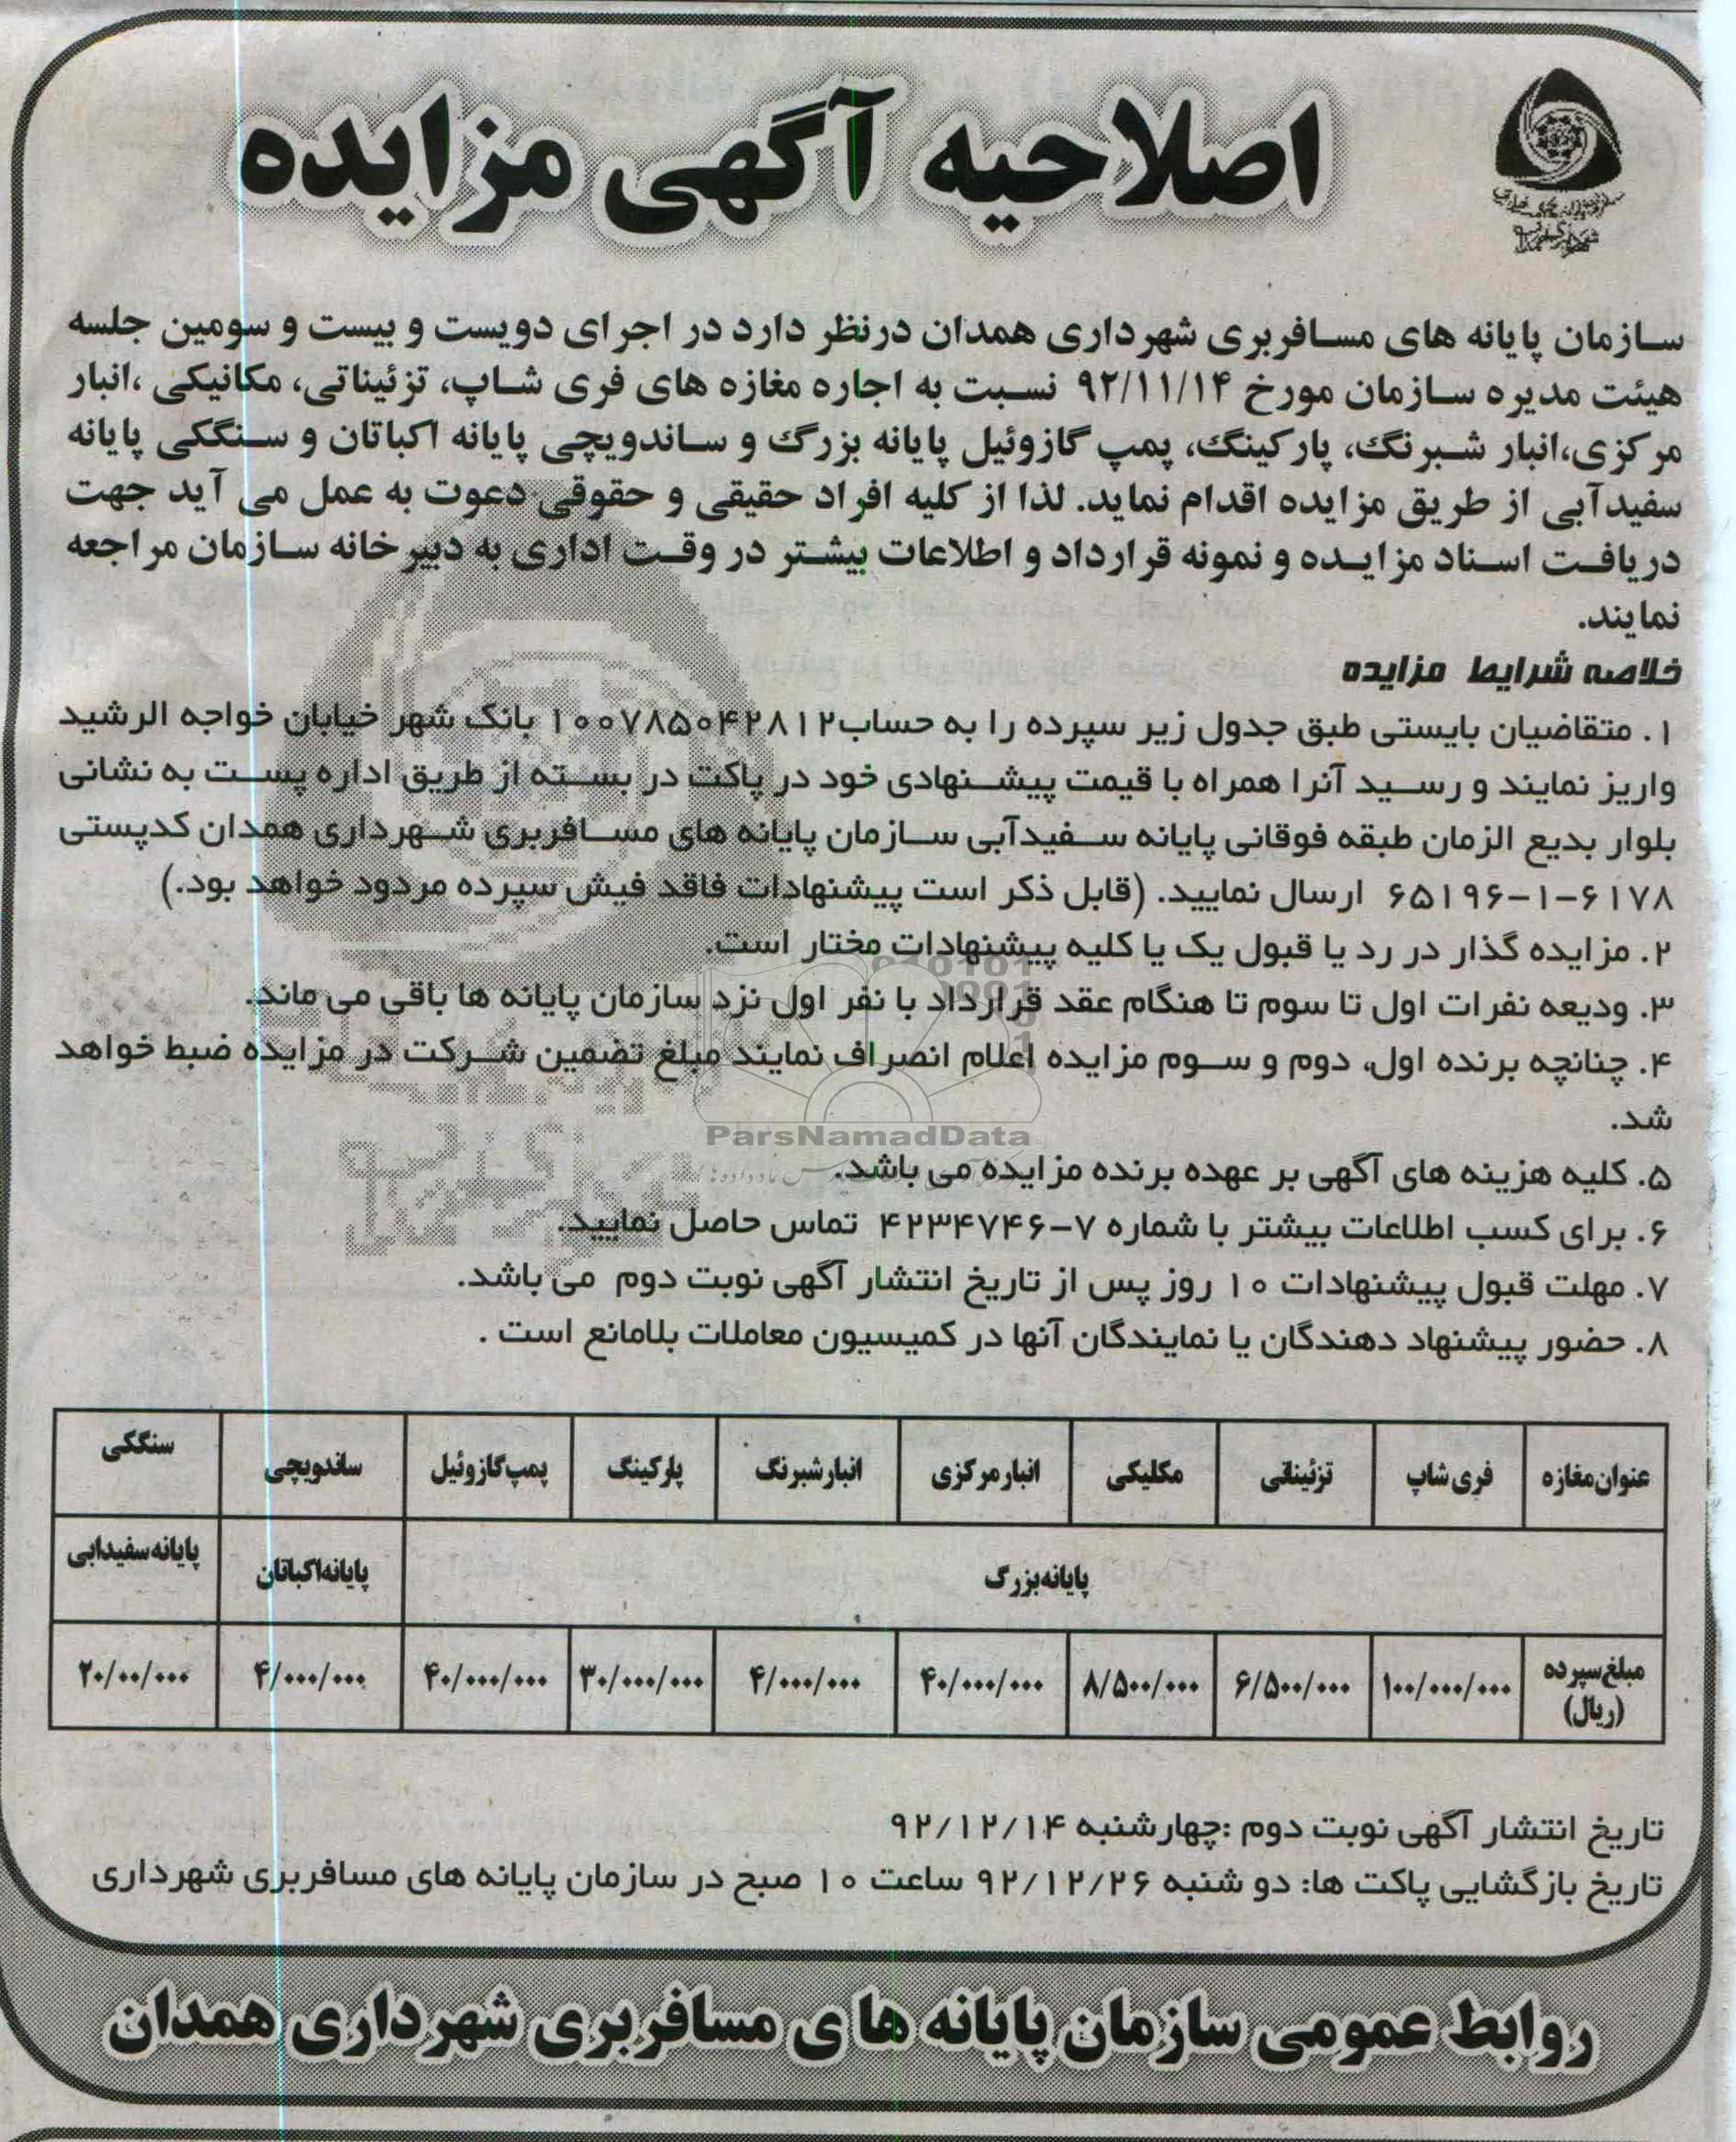 اصلاحیه آگهی مزایده
سازمان پایانه های مسافربری شهرداری همدان درنظر دارد در اجرای دویست و بیست و سومین جلسه
هیئت مدیره سازمان مورخ ۹۲/۱۱/۱۴ نسبت به اجاره مغازه های فری شاپ، تزئیناتی، مکانیکی ،انبار
مرکزی،انبار شبرنگ، پارکینگ، پمپ گازوئیل پایانه بزرگ و ساندویچی پایانه اکباتان و سنگکی پایانه
سفیدآبی از طریق مزایده اقدام نماید. لذا از کلیه افراد حقیقی و حقوقی دعوت به عمل می آید جهت
دریافت اسناد مزایده و نمونه قرارداد و اطلاعات بیشتر در وقت اداری به دبیرخانه سازمان مراجعه
نمایند.
خلاصه شرایط مزایده
۱. متقاضیان بایستی طبق جدول زیر سپرده را به حساب۱۰۰۷۸۵۰۴۲۸۱۲ بانک شهر خیابان خواجه الرشید
واریز نمایند و رسید آنرا همراه با قیمت پیشنهادی خود در پاکت در بسته از طریق اداره پست به نشانی
بلوار بدیع الزمان طبقه فوقانی پایانه سفیدآبی سازمان پایانه های مسافربری شهرداری همدان کدپستی
۶۵۱۹۶-۱-۶۱۷۸ ارسال نمایید. (قابل ذکر است پیشنهادات فاقد فیش سپرده مردود خواهد بود.)
۲. مزایده گذار در رد یا قبول یک یا کلیه پیشنهادات مختار است.
۳. ودیعه نفرات اول تا سوم تا هنگام عقد قرارداد با نفر اول نزد سازمان پایانه ها باقی می ماند.
۴. چنانچه برنده اول، دوم و سوم مزایده اعلام انصراف نمایند مبلغ تضمین شرکت در مزایده ضبط خواهد
شد.
ParsNamadData
۵. کلیه هزینه های آگهی بر عهده برنده مزایده می باشد.
۶. برای کسب اطلاعات بیشتر با شماره ۷-۴۲۳۴۷۴۶ تماس حاصل نمایید.
۷. مهلت قبول پیشنهادات ۱۰ روز پس از تاریخ انتشار آگهی نوبت دوم می باشد.
۸. حضور پیشنهاد دهندگان یا نمایندگان آنها در کمیسیون معاملات بلامانع است .
عنوان مغازه فری شاپ تزئیناتی مکانیکی انبار مرکزی انبار شبرنگ پارکینگ پمپ گازوئیل ساندویچی سنگکی
پایانه بزرگ پایانه اکباتان پایانه سفیدابی
مبلغ سپرده (ریال) ۱۰۰/۰۰۰/۰۰۰ ۶/۵۰۰/۰۰۰ ۸/۵۰۰/۰۰۰ ۴۰/۰۰۰/۰۰۰ ۴/۰۰۰/۰۰۰ ۳۰/۰۰۰/۰۰۰ ۴۰/۰۰۰/۰۰۰ ۴/۰۰۰/۰۰۰ ۲۰/۰۰/۰۰۰
تاریخ انتشار آگهی نوبت دوم :چهارشنبه ۹۲/۱۲/۱۴
تاریخ بازگشایی پاکت ها: دو شنبه ۹۲/۱۲/۲۶ ساعت ۱۰ صبح در سازمان پایانه های مسافربری شهرداری
روابط عمومی سازمان پایانه های مسافربری شهرداری همدان